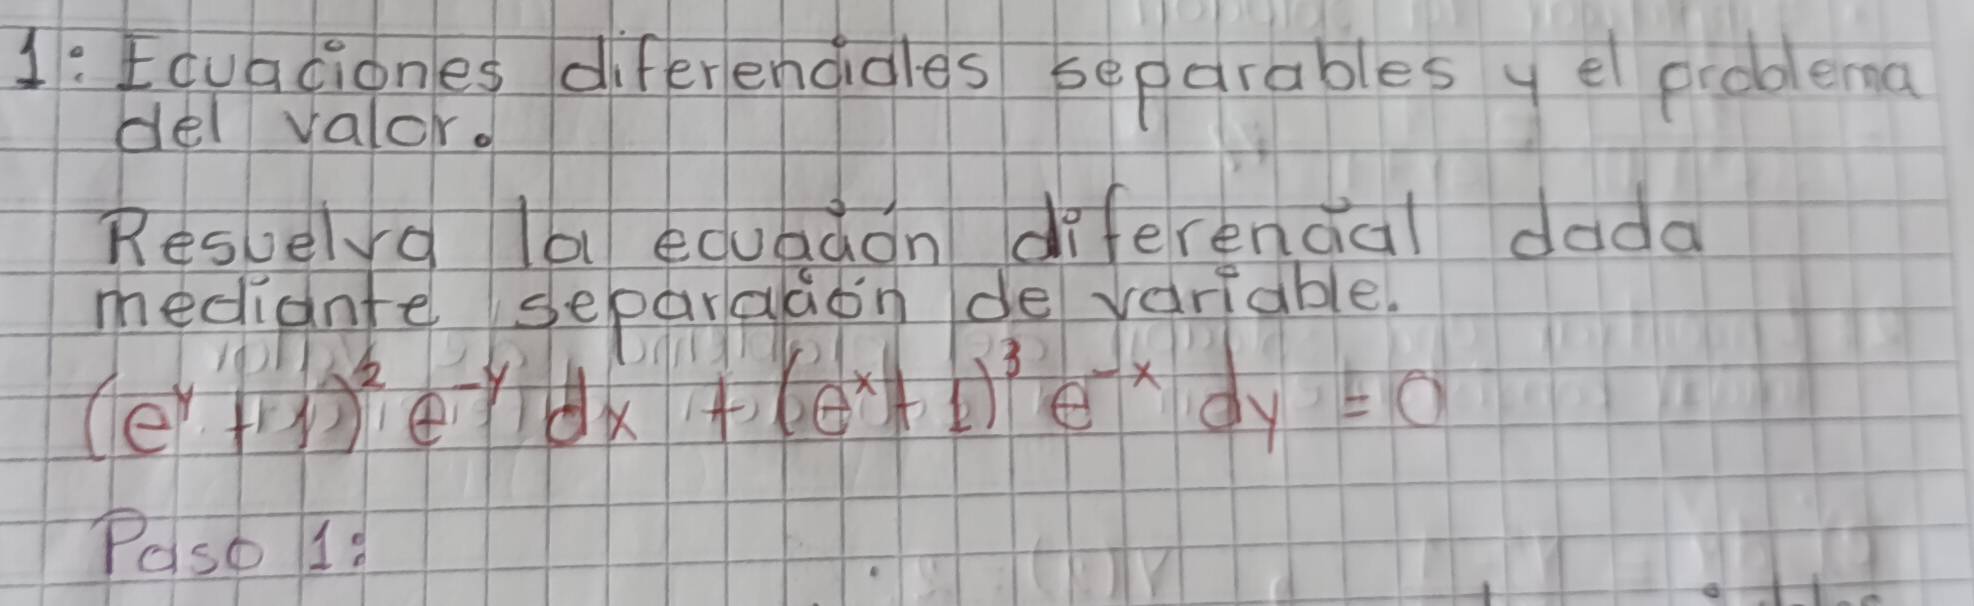 1: Ecuaciones diferenciales separables y el problema
del valor.
Resuelva la ecuación diferencial dada
mediante separación de variable.
(e^y + 1)^2 e^-y dx + (e^x + 1)^3 e^-x dy = 0
Paso 1: